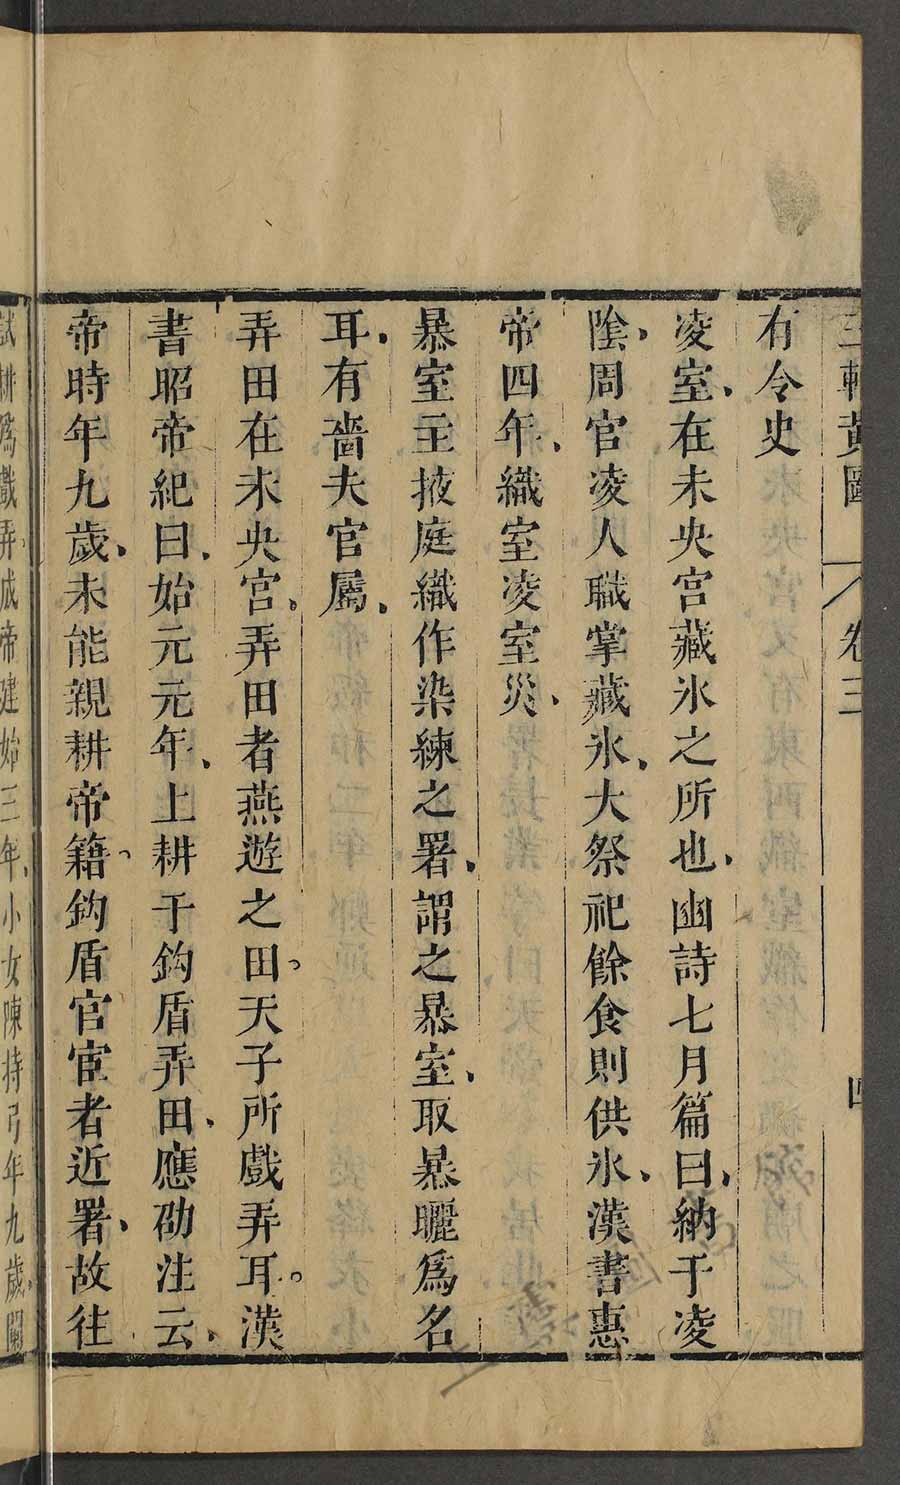 三輔黃圖 卷三 四
有令史
凌室在未央宮藏氷之所也豳詩七月篇曰納于凌
陰周官凌人職掌藏氷大祭祀餘食則供氷漢書惠
帝四年織室凌室災
暴室主掖庭織作染練之署謂之暴室取暴曬爲名
耳有嗇夫官屬
弄田在未央宮弄田者燕遊之田天子所戲弄耳漢
書昭帝紀曰始元元年上耕于鈎盾弄田應劭注云
帝時年九歲未能親耕帝籍鈎盾官宦者近署故往
試耕爲戲弄成帝建始三年小女陳持弓年九歲闌